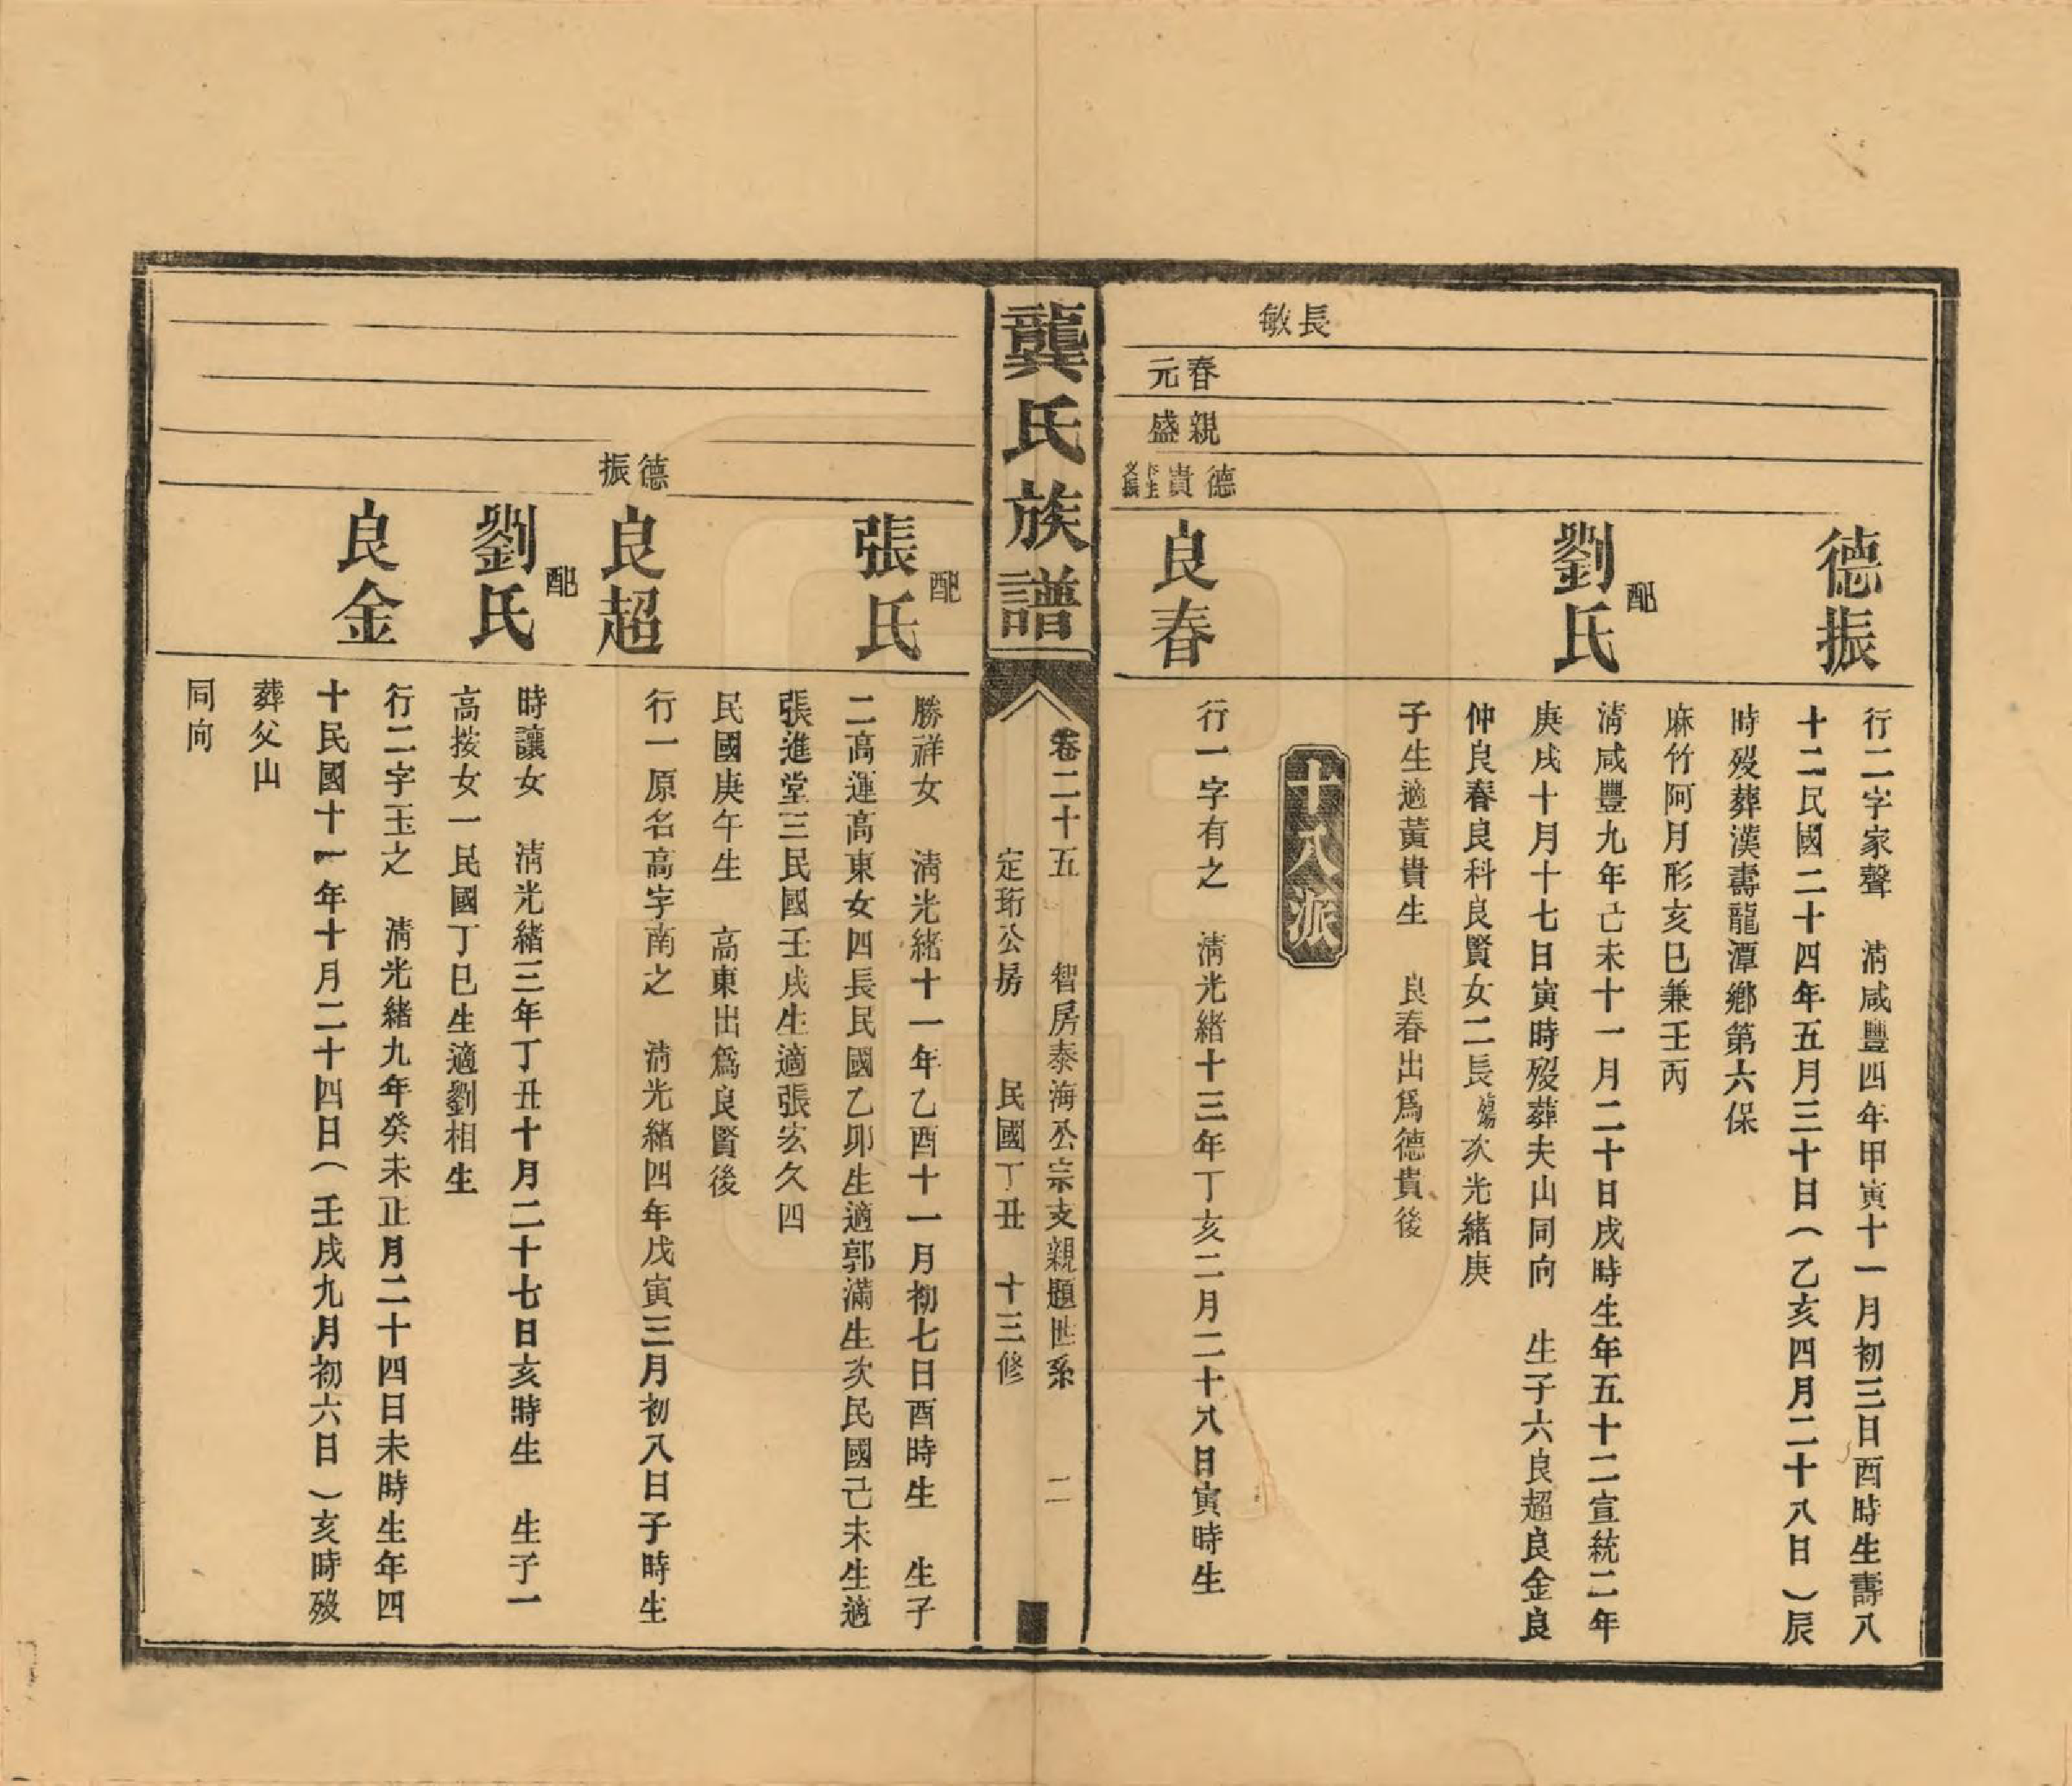 德振
行二字家聲　清咸豐四年甲寅十一月初三日酉時生壽八
十二民國二十四年五月三十日(乙亥四月二十八日)辰
時歿葬漢壽龍潭鄉第六保
麻竹阿月形亥巳兼壬丙
配
劉氏
清咸豐九年己未十一月二十日戌時生年五十二宣統二年
庚戌十月十七日寅時歿葬夫山同向　生子六良超良金良
仲良春良科良賢女二長殤次光緒庚
子生適黃貴生　良春出為德貴後
十八派
長敏
春元
親盛
德貴
生父振
良春
行一字有之　清光緒十三年丁亥二月二十八日寅時生
龔氏族譜
卷二十五　智房泰海公宗支親題世系　二
定珩公房　民國丁丑　十三修
配
張氏
勝祥女　清光緒十一年乙酉十一月初七日酉時生　生子
二高運高東女四長民國乙卯生適郭滿生次民國己未生適
張進堂三民國壬戌生適張宏久四
民國庚午生　高東出為良賢後
德振
良超
行一原名高字南之　清光緒四年戊寅三月初八日子時生
配
劉氏
時讓女　清光緒三年丁丑十月二十七日亥時生　生子一
高按女一民國丁巳生適劉相生
良金
行二字玉之　清光緒九年癸未正月二十四日未時生年四
十民國十一年十月二十四日(壬戌九月初六日)亥時歿
葬父山
同向